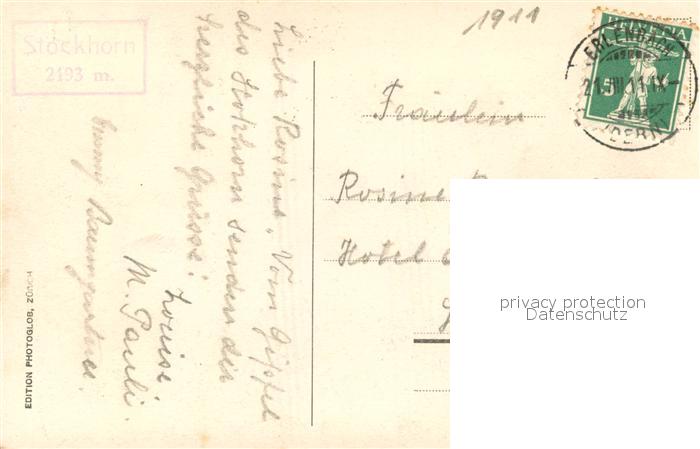 Stockhorn
2193 m.
1911
HELVETIA
ERLENBACH
21.VIII.11.IX
(BERN)
Liebe Rosine, Vom Gipfel
des Stockhorn senden dir
herzliche Grüsse:
Louise
M. Pauli.
Emmy Baumgartner.
Fräulein
Rosine
Hotel
EDITION PHOTOGLOB, ZÜRICH
privacy protection
Datenschutz